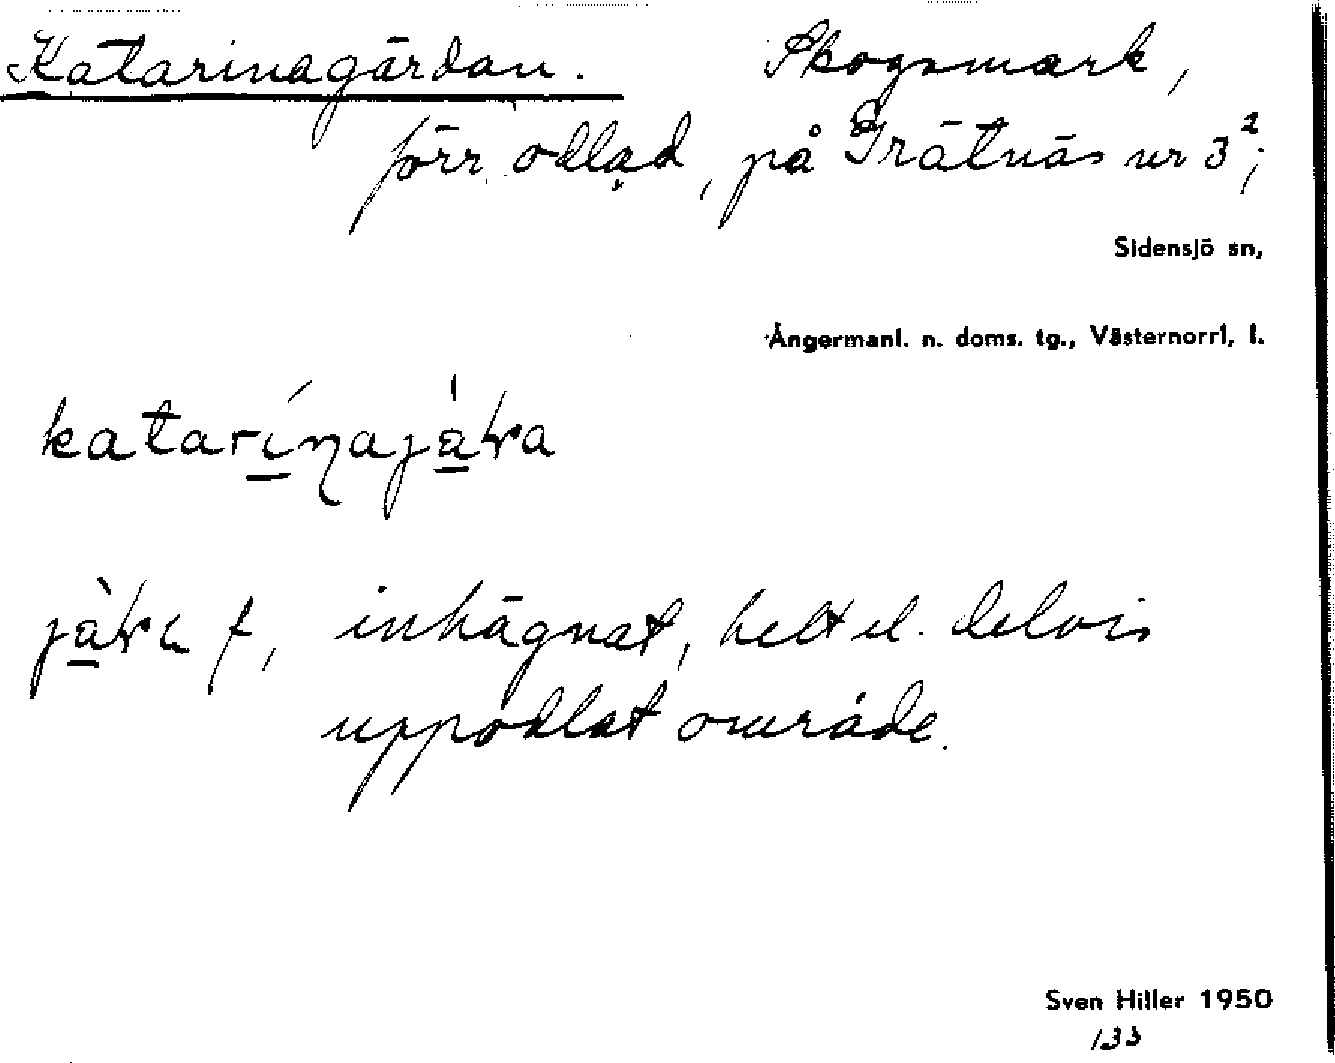 Katarinagärdan. Skogsmark,
förr odlad, på Grätnäs nr 3²;
Sidensjö sn,
Ångermanl. n. doms. tg., Västernorrl. l.
inhägnat, helt el. delvis
uppodlat område.
Sven Hiller 1950
133